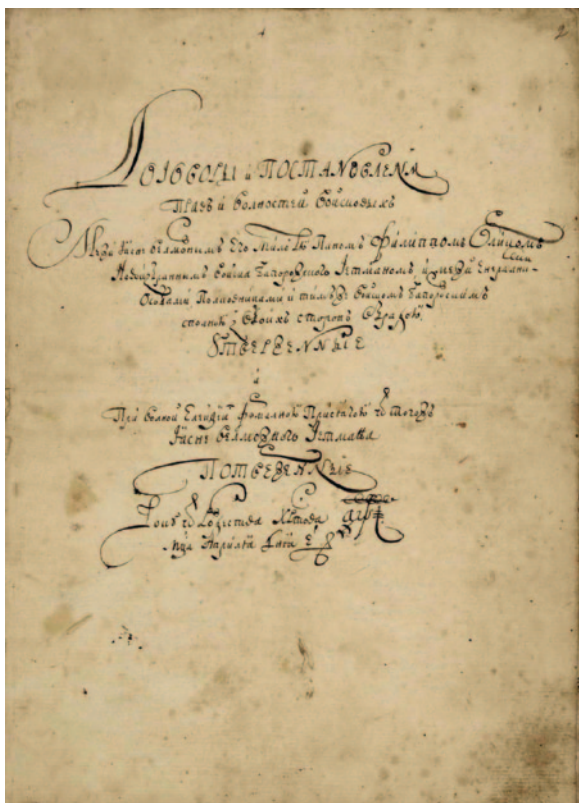 2
Договоры и постановленія
правъ и волностей войсковыхъ
Межи Ясне велможнымъ Его Милостю Паномъ Филиппомъ Орликомъ
Новоизбраннымъ войска Запорозкого Гетманомъ, и межи Енералними
Особами Полковниками и тимъ же войскомъ Запорозкимъ
сполною з обоихъ сторонъ обрадою
Утверженніе
и
При волной Елекціи формалною присягою ѿ тогожъ
Ясне велможного Гетмана
Потверженніе
Року ѿ Рождества Хрстова ҂аѱі
мца Априлія